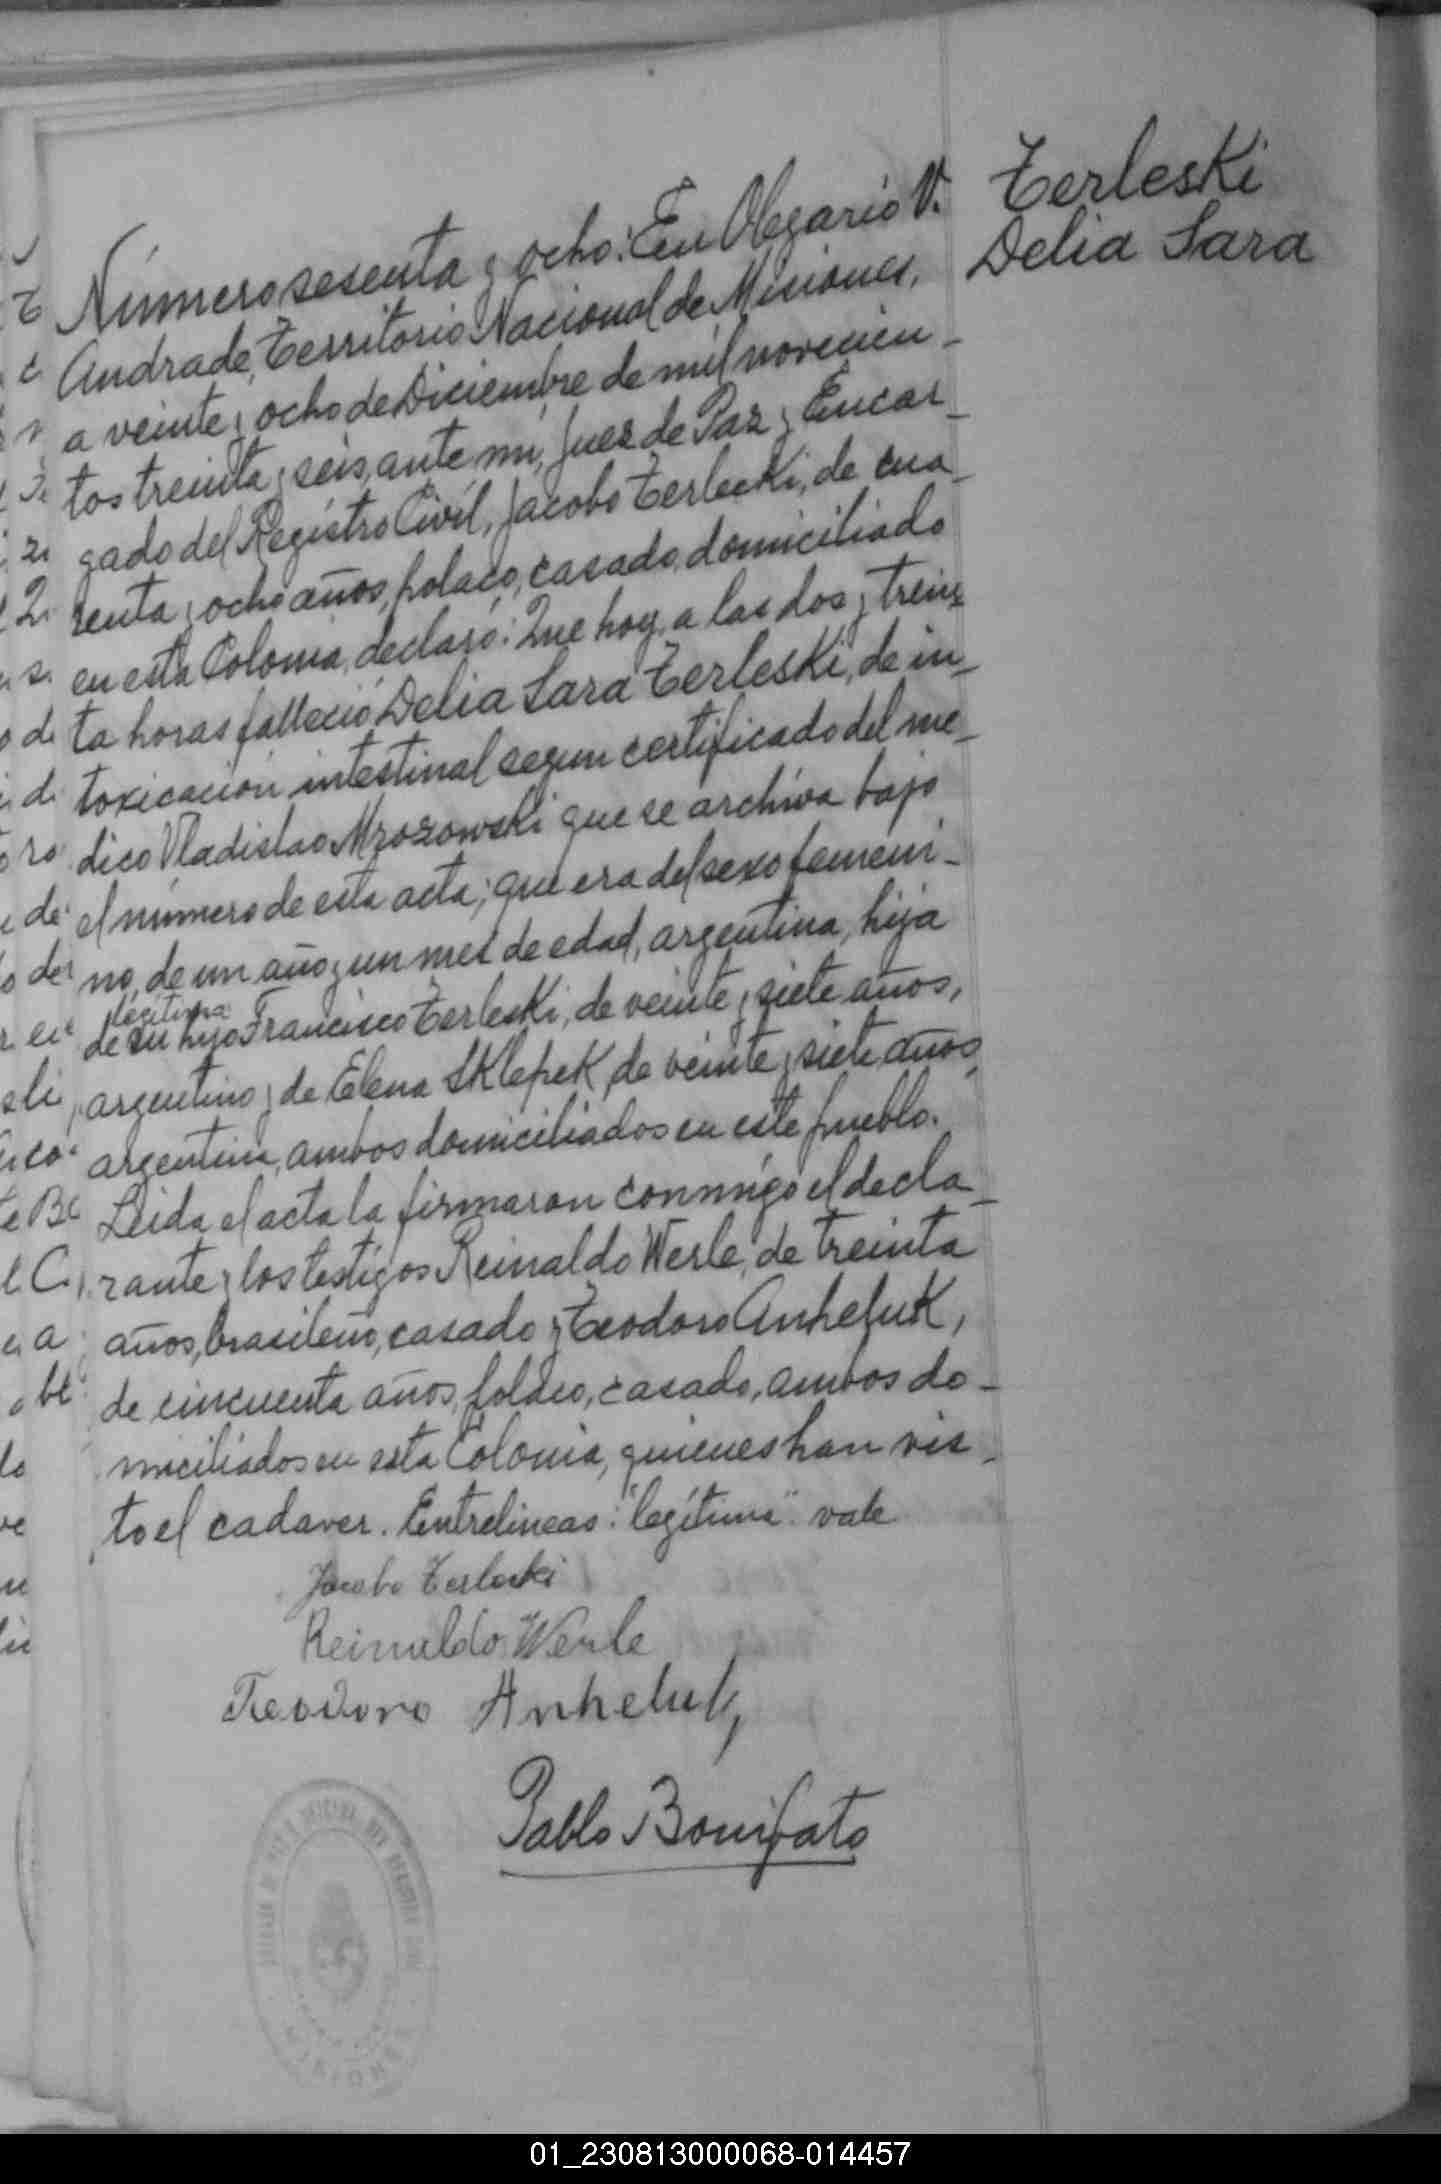 Terleski
Delia Sara
Número sesenta y ocho: En Olegario V.
Andrade, Territorio Nacional de Misiones,
a veinte y ocho de Diciembre de mil novecien-
tos treinta y seis, ante mi, Juez de Paz y Encar-
gado del Registro Civil, Jacobo Terlecki, de cua-
renta y ocho años, polaco, casado, domiciliado
en esta Colonia, declaró: Que hoy, a las dos y trein-
ta horas falleció Delia Sara Terleski, de in-
toxicación intestinal segun certificado del me-
dico Vladislao Mrozowski que se archiva bajo
el número de esta acta; que era del sexo femeni-
no, de un año y un mes de edad, argentina, hija
legitima
de su hijo Francisco Terleski, de veinte y siete años,
argentino y de Elena Sklepek, de veinte y siete años,
argentina, ambos domiciliados en este pueblo.
Leida el acta la firmaron conmigo el decla-
rante y los testigos Reinaldo Werle, de treinta
años, brasileño, casado y Teodoro Anheluk,
de cincuenta años, polaco, casado, ambos do-
miciliados en esta Colonia, quienes han vis-
to el cadaver. Entrelineas: "legítima" vale
Jacobo Terlecki
Reinaldo Werle
Teodoro Anheluk
Pablo Bonifato
MISIONES
01_230813000068-014457